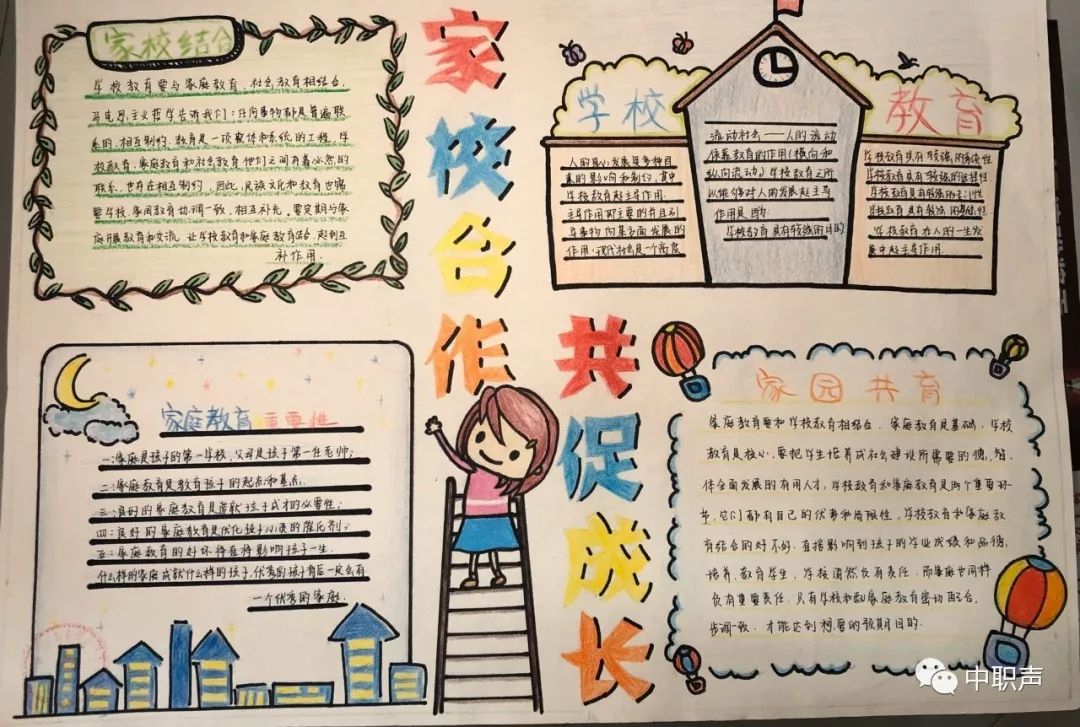 家校合作
共促成长
家校结合
学校教育要与家庭教育、社会教育相结合,
马克思主义哲学告诉我们:任何事物都是普遍联
系的,相互制约,教育是一项整体和系统的工程,学
校教育、家庭教育和社会教育他们之间有着必然的
联系,也存在相互制约,因此,民族文化和教育也需
要学校、家园教育协调一致,相互补充,要定期与家
庭开展教育和交流,让学校教育和家庭教育结合,起到互
补作用.
学校
教育
人的身心发展是多种因
素的影响和制约,其中
学校教育起主导作用.
主导作用即主要的并且引
导事物向某方面发展的
作用,现代社会是一个高度
流动社会——人的流动
保着教育的作用(横向和
纵向流动)学校教育之所
以能够对人的发展起主导
作用是的
学校教育具有较强的目的
学校教育具有较强的系统性
学校教育具有较强的选择性
学校教育具有较强的
学校教育具有较强的基础性
学校教育在人的一生发
展中起主导作用.
家庭教育重要性
一:家庭是孩子的第一学校,父母是孩子第一任老师;
二:家庭教育是教育孩子的起点和基点.
三:良好的家庭教育是造就孩子成才的必要性;
四:良好的家庭教育是优化孩子心灵的催化剂;
五:家庭教育的好坏将直将影响孩子一生.
什么样的家庭成就什么样的孩子,优秀的孩子背后一定会有
一个优秀的家庭.
家园共育
家庭教育要和学校教育相结合,家庭教育是基础,学校
教育是核心,要把学生培养成社会建设所需要的德、智、
体全面发展的有用人才,学校教育和家庭教育是两个重要环
节,它们都有自己的优势和局限性,学校教育和家庭教
育结合的好不好,直接影响到孩子的学业成绩和品德,
培养、教育学生,学校固然负有责任,而家庭也同样
负有重要责任,只有学校和家庭教育密切配合,
步调一致,才能达到想要的预期目的.
中职声